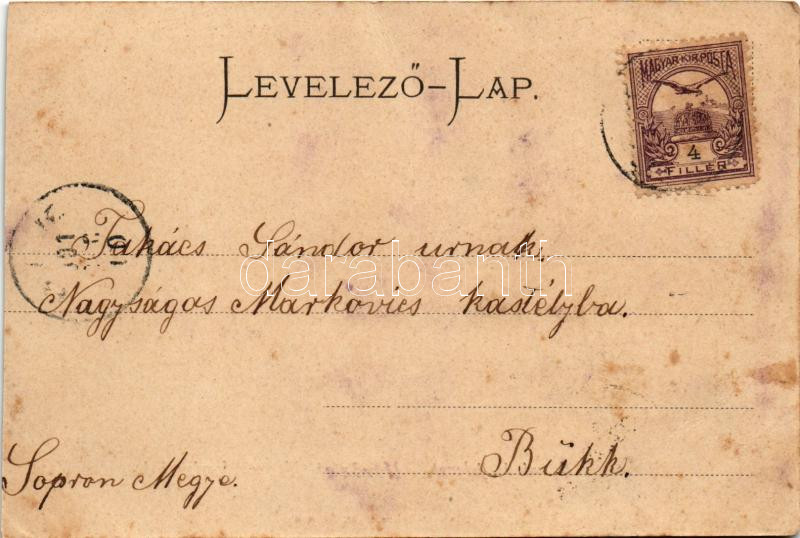 LEVELEZŐ-LAP.
MAGYAR KIR. POSTA
4
FILLÉR
Takács Sándor urnak,
darabanth
Nagyságos Markovics kastélyba.
Bükk.
Sopron Megye.